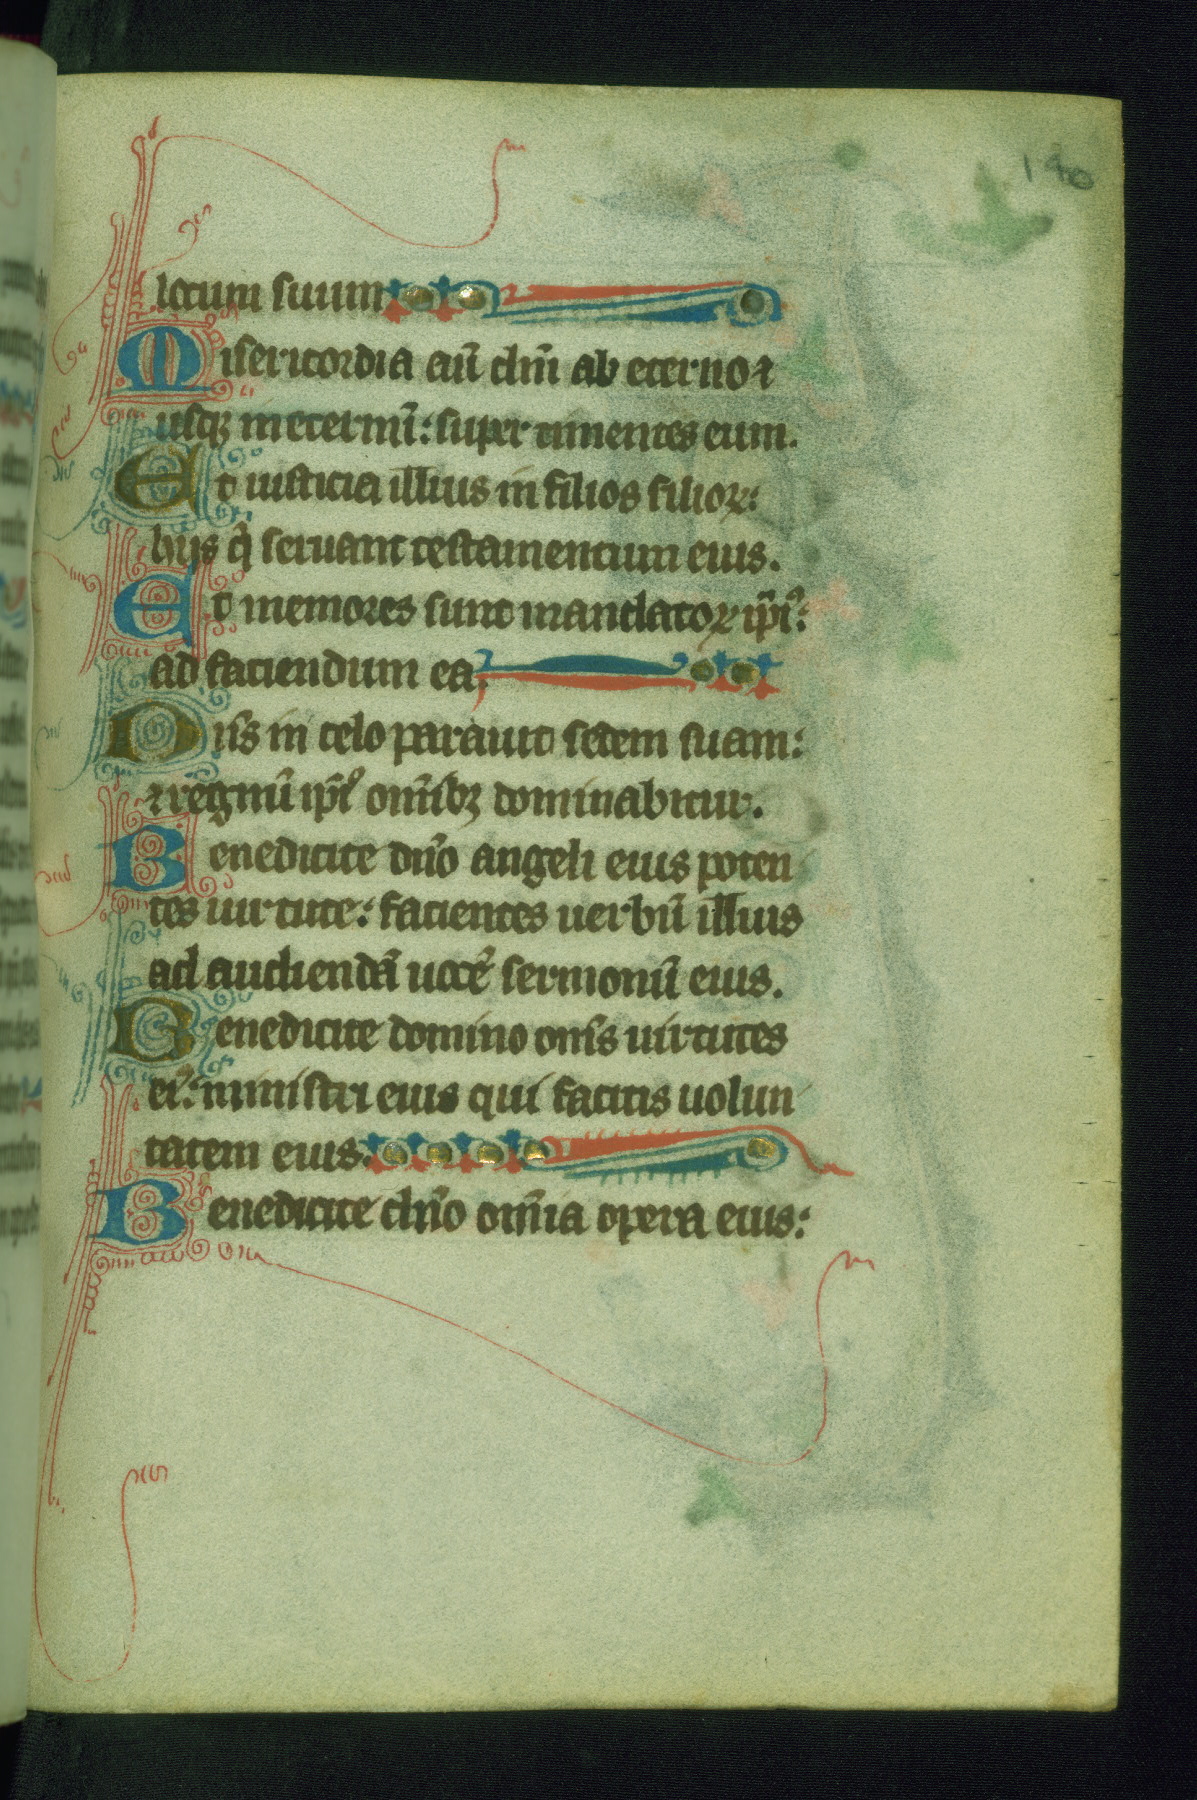 140
locum suum
Misericordia aū dn̄i ab eterno ⁊
usqꝫ in eternū: super timentes eum.
Et iusticia illius in filios filioꝝ:
hijs q̇ seruant testamentum eius.
Et memores sunt mandatoꝝ ip̄iꝰ:
ad faciendum ea.
Dn̄s in celo parauit sedem suam:
⁊ regnū ip̄iꝰ om̄ibꝫ dominabitur.
Benedicite dn̄o angeli eius poten
tes uirtute: facientes uerbū illius
ad audiendā uocē sermonū eius.
Benedicite domino om̄s uirtutes
eiꝰ: ministri eius qui facitis uolun
tatem eius.
Benedicite dn̄o om̄ia opera eius: